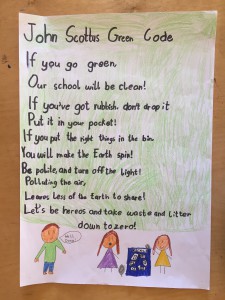 John Scottus Green Code
If you go green,
Our school will be clean!
If you've got rubbish, don't drop it
Put it in your pocket!
If you put the right things in the bin.
You will make the Earth spin!
Be polite, and turn off the light!
Polluting the air,
Leaves less of the Earth to share!
Let's be heroes and take waste and litter
down to zero!